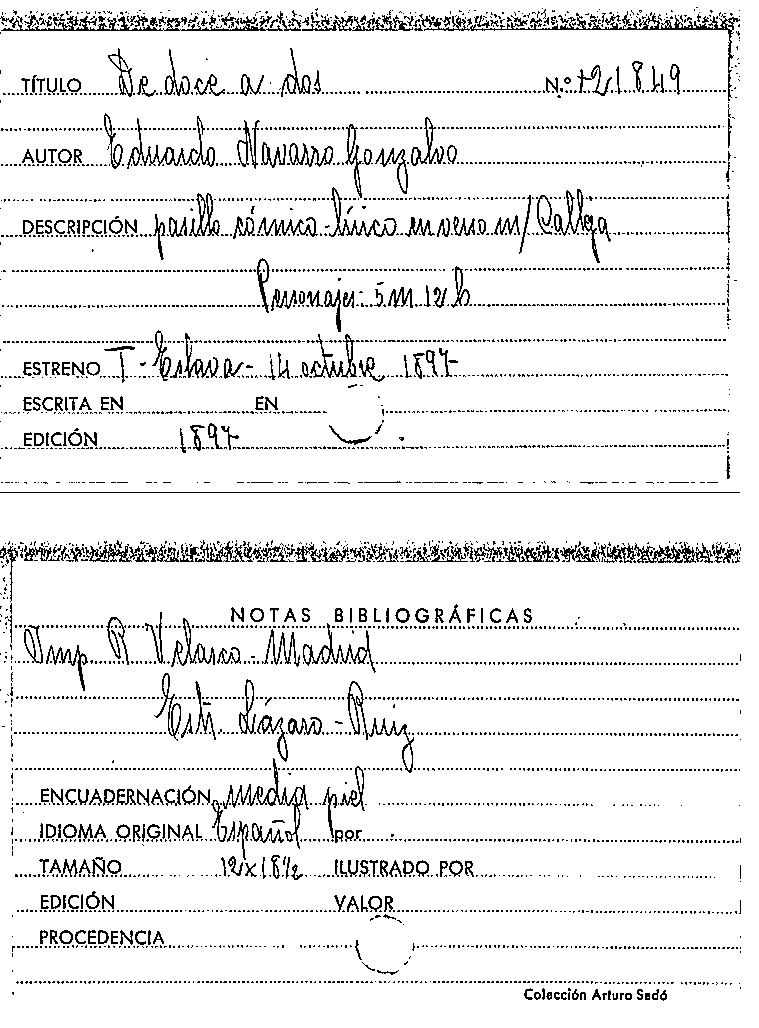 TÍTULO De doce a dos N.º 721849
AUTOR Eduardo Navarro Gonzalvo
DESCRIPCIÓN pasillo cómico-lírico en verso m/ Calleja
Personajes: 5 m 12 h
ESTRENO T - Eslava - 14 octubre 1897
ESCRITA EN EN
EDICIÓN 1897
NOTAS BIBLIOGRÁFICAS
Imp. R Velasco - Madrid
Estr. Lázaro - Ruiz
ENCUADERNACIÓN media piel
IDIOMA ORIGINAL Español por
TAMAÑO 12x18½ ILUSTRADO POR
EDICIÓN VALOR
PROCEDENCIA
Colección Arturo Sedó